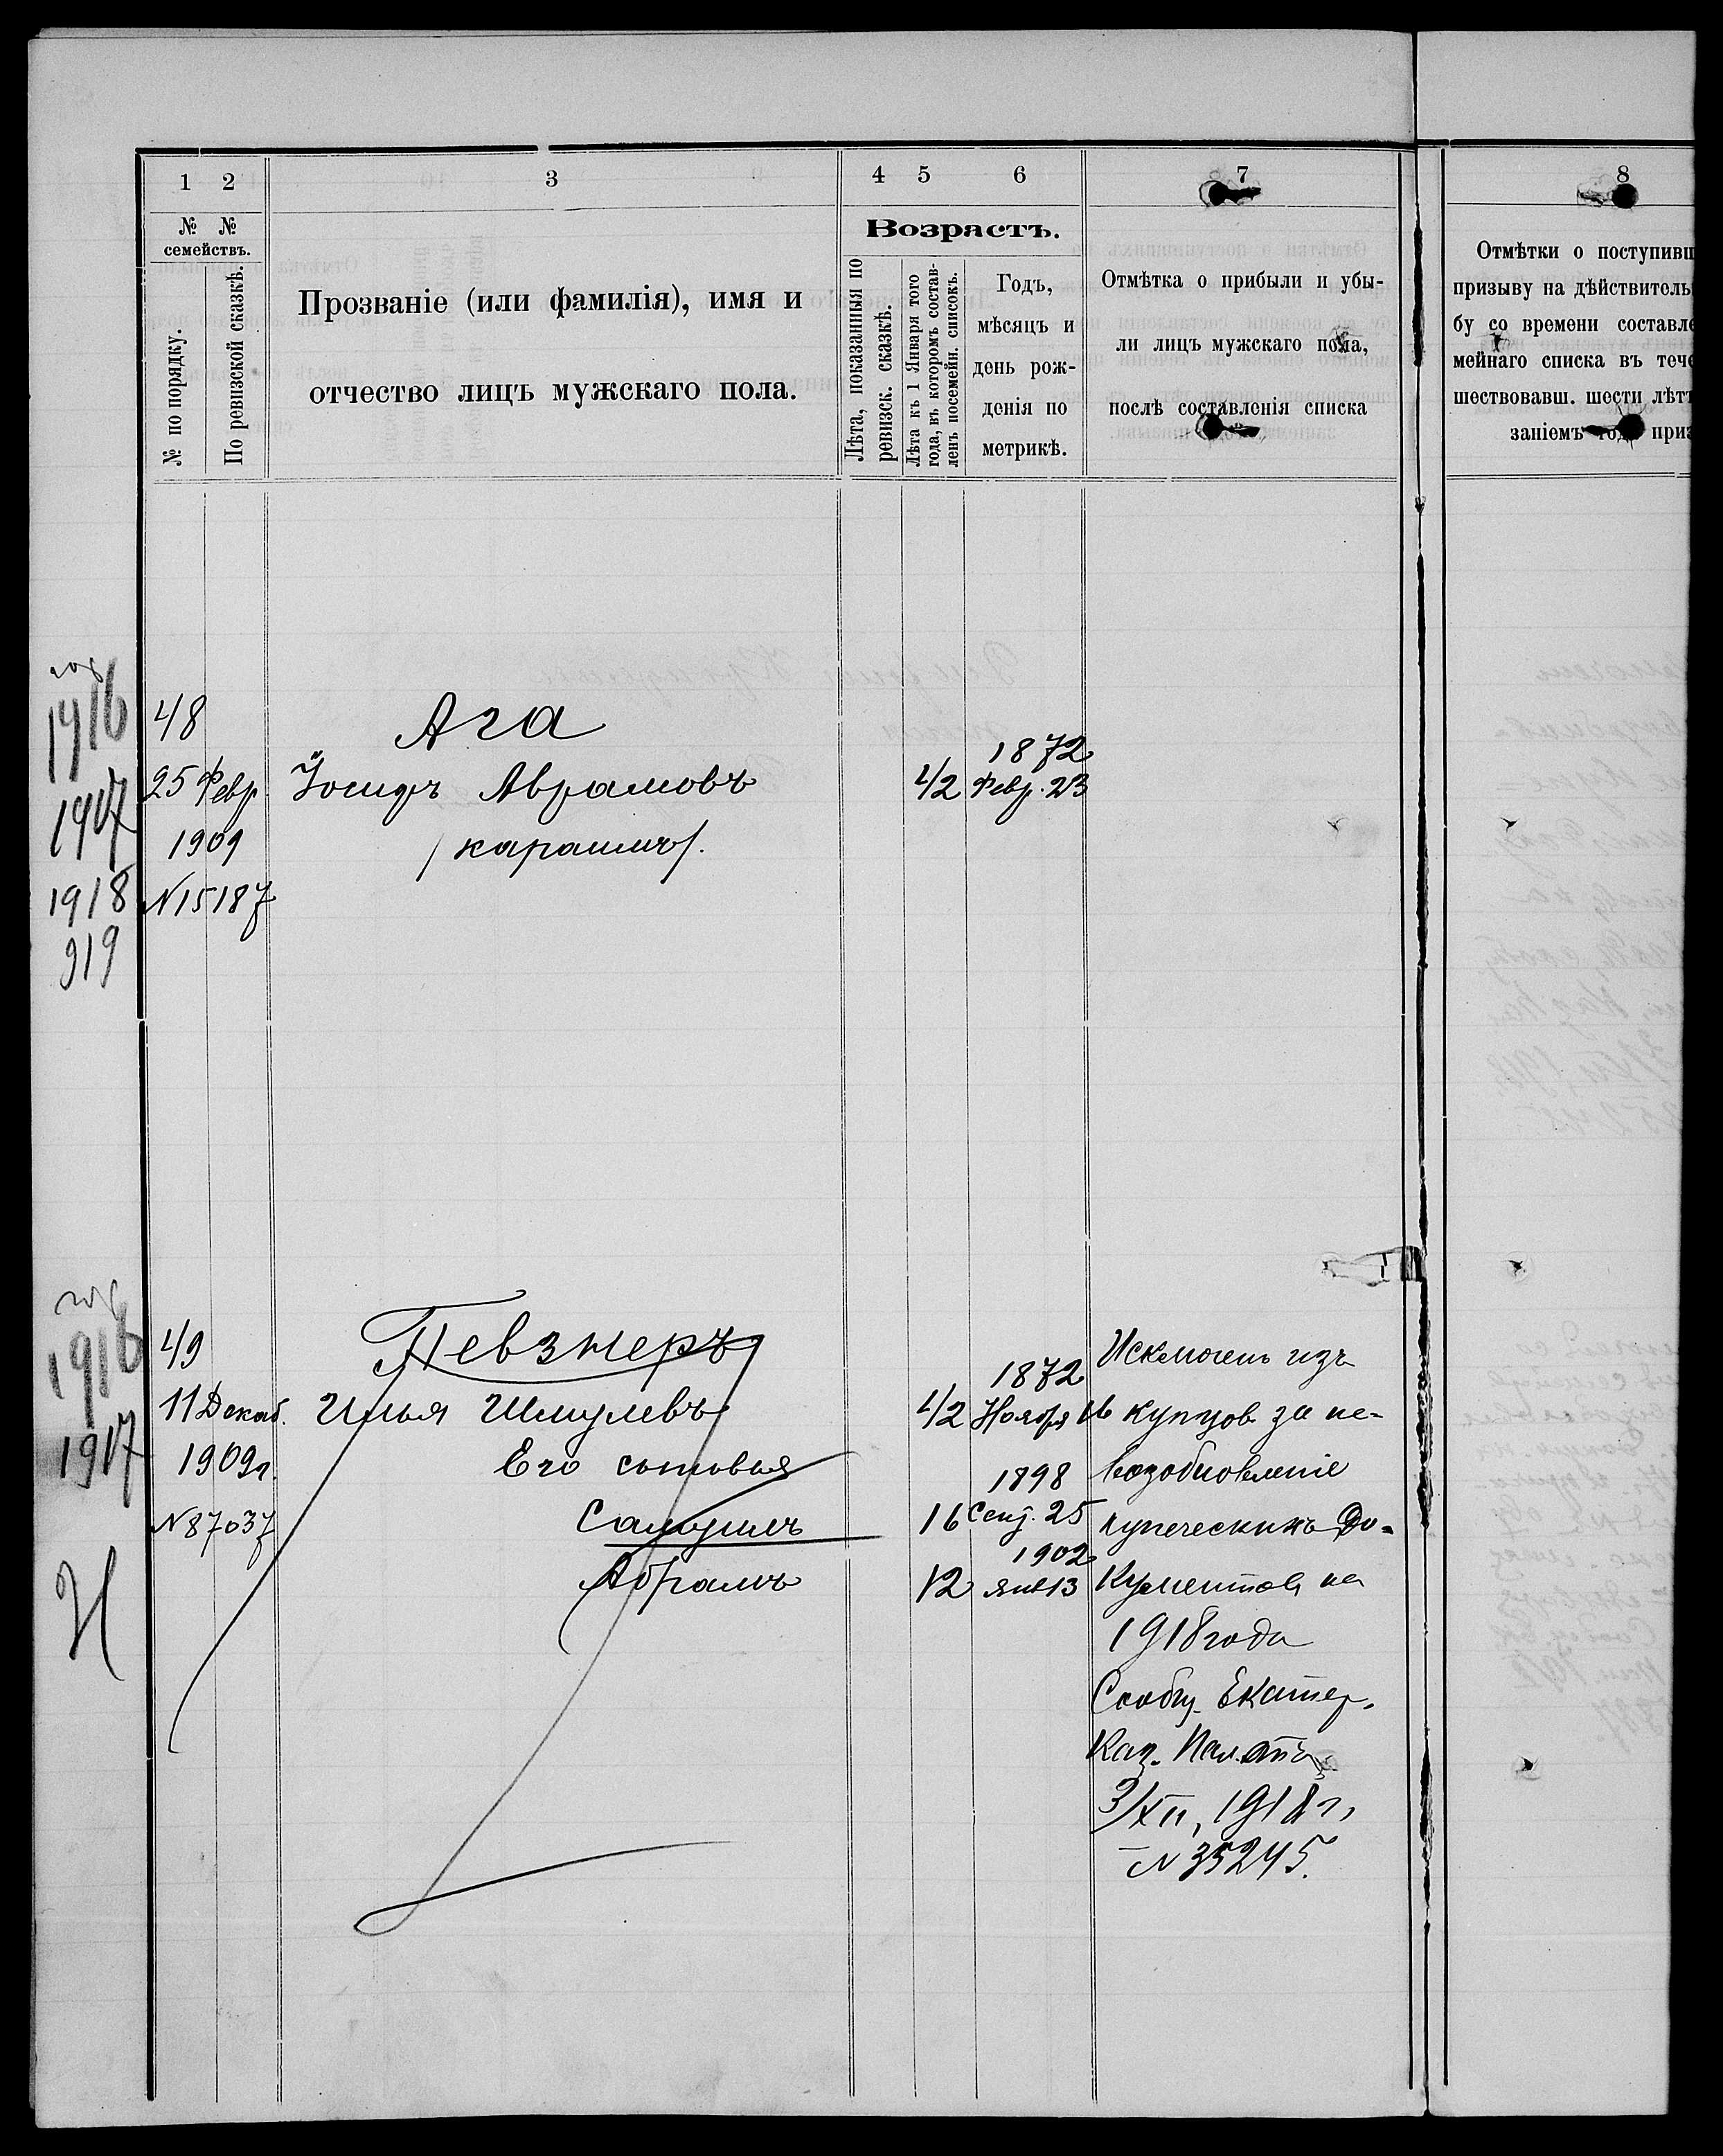 1 2 3 4 5 6 7 8
№ № семействъ.
№ по порядку.
По ревизской сказкѣ.
Прозваніе (или фамилія), имя и
отчество лицъ мужскаго пола.
Возрастъ.
Лѣта, показанныя по
ревизск. сказкѣ.
Лѣта къ 1 Января того
года, въ которомъ состав-
ленъ посемейн. списокъ.
Годъ,
мѣсяцъ и
день рож-
денія по
метрикѣ.
Отмѣтка о прибыли и убы-
ли лицъ мужскаго пола,
послѣ составленія списка
Отмѣтки о поступивш
призыву на дѣйствитель
бу со времени составле
мейнаго списка въ тече
шествовавш. шести лѣтъ
заніемъ года приз
год
1916
1917
1918
919
48
25 Февр.
1909
N 15187
Ага
Іосифъ Аврамовъ
/караимъ/.
42
1872
Февр. 23
год
1916
1917
И
49
11 Декаб.
1909 г.
N 87037
Певзнеръ
Илья Шмулевъ
Его сыновья
Самуилъ
Абрамъ
42
1872
Ноября 16
16
1898
Сент. 25
12
1902
Янв 13
Исключенъ изъ
купцов за не-
возобновленіе
купеческихъ до-
кументов на
1918 года
Сообщ. Екатер.
Каз. Палаты
3/XII, 1918 г,
N 35245.